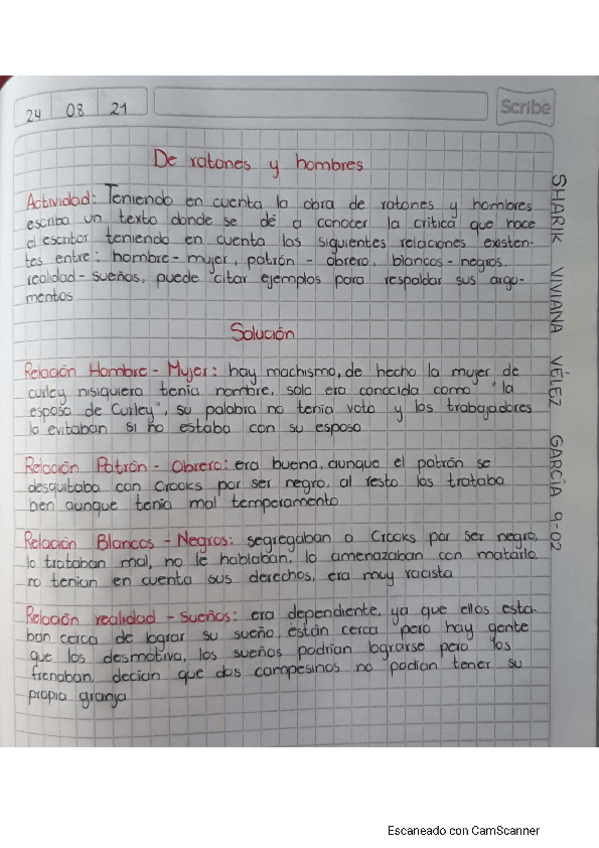 24 08 21
Scribe
De ratones y hombres
Actividad: Teniendo en cuenta la obra de ratones y hombres
escriba un texto donde se dé a conocer la critica que hace
el escritor teniendo en cuenta las siguientes relaciones existen-
tes entre: hombre - mujer, patrón - obrero, blancos - negros,
realidad - sueños, puede citar ejemplos para respaldar sus argu-
mentos
Solución
Relación Hombre - Mujer: hay machismo, de hecho la mujer de
curley nisiquiera tenia nombre, solo era conocida como "la
esposa de Curley", su palabra no tenia voto y los trabajadores
la evitaban si no estaba con su esposo
Relación Patrón - Obrero: era buena, aunque el patrón se
desquitaba con Crooks por ser negro, al resto los trataba
bien aunque tenia mal temperamento
Relación Blancos - Negros: segregaban a Crooks por ser negro,
lo trataban mal, no le hablaban, lo amenazaban con matarlo
no tenian en cuenta sus derechos, era muy racista
Relación realidad - sueños: era dependiente, ya que ellos esta-
ban cerca de lograr su sueño, están cerca pero hay gente
que los desmotiva, los sueños podrian lograrse pero los
frenaban, decian que dos campesinos no podian tener su
propia granja
SHARIK VIVIANA VÉLEZ GARCÍA 9-02
Escaneado con CamScanner